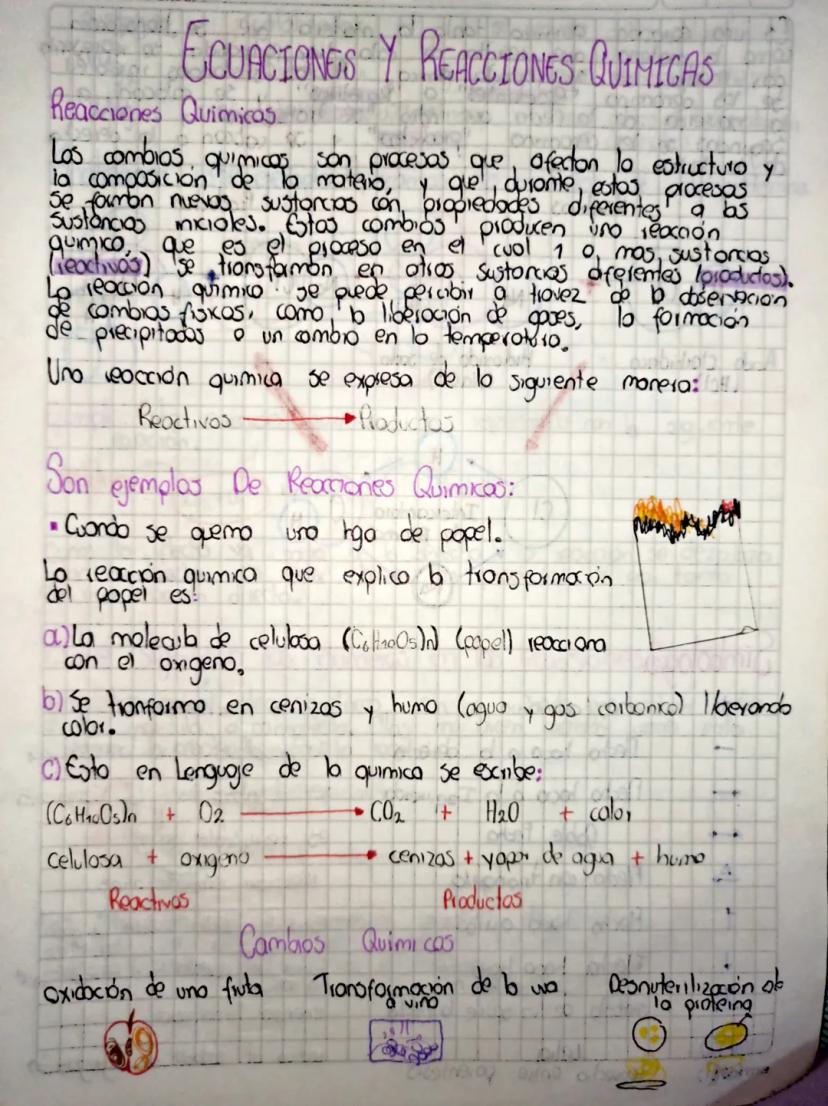 ECUACIONES Y REACCIONES QUIMICAS
Reacciones Quimicas
Los cambios quimicos son procesos que afectan la estructura y
la composición de la materia, y que, durante, estos procesos
se forman nuevas sustancias con propiedades diferentes a las
sustancias iniciales. Estos cambios producen una reacción
quimica, que es el proceso en el cual 1 o mas, sustancias
(reactivos) se transforman en otras sustancias diferentes (productos).
La reacción quimica se puede percibir a travez de la observacion
de cambios fisicos, como la liberación de gases, la formación
de precipitados o un cambio en la temperatura.
Una reacción quimica se expresa de la siguiente manera:
Reactivos → Productos
Son ejemplos De Reacciones Quimicas:
· Cuando se quema una hoja de papel.
La reacción quimica que explica la transformación
del papel es:
a) La molecula de celulosa (C6H10O5)n) (papel) reacciona
con el oxigeno,
b) Se tranforma en cenizas y humo (agua y gas carbonico) liberando
calor.
c) Esto en Lenguaje de la quimica se escribe:
(C6H10O5)n + O2 → CO2 + H2O + calor
celulosa + oxigeno → cenizas + vapor de agua + humo
Reactivos Productos
Cambios Quimicos
oxidación de una fruta Transformación de la uva Desnuterilización de
a vino la proteina